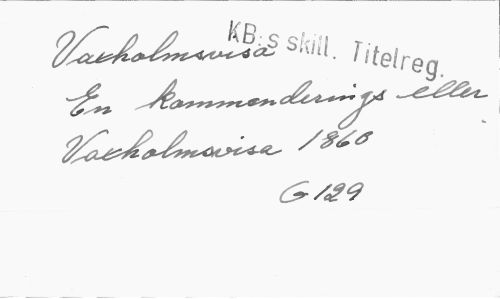 Vaxholmsvisa
KB:s skill. Titelreg.
En kommenderings eller
Vaxholmsvisa 1860
G 129